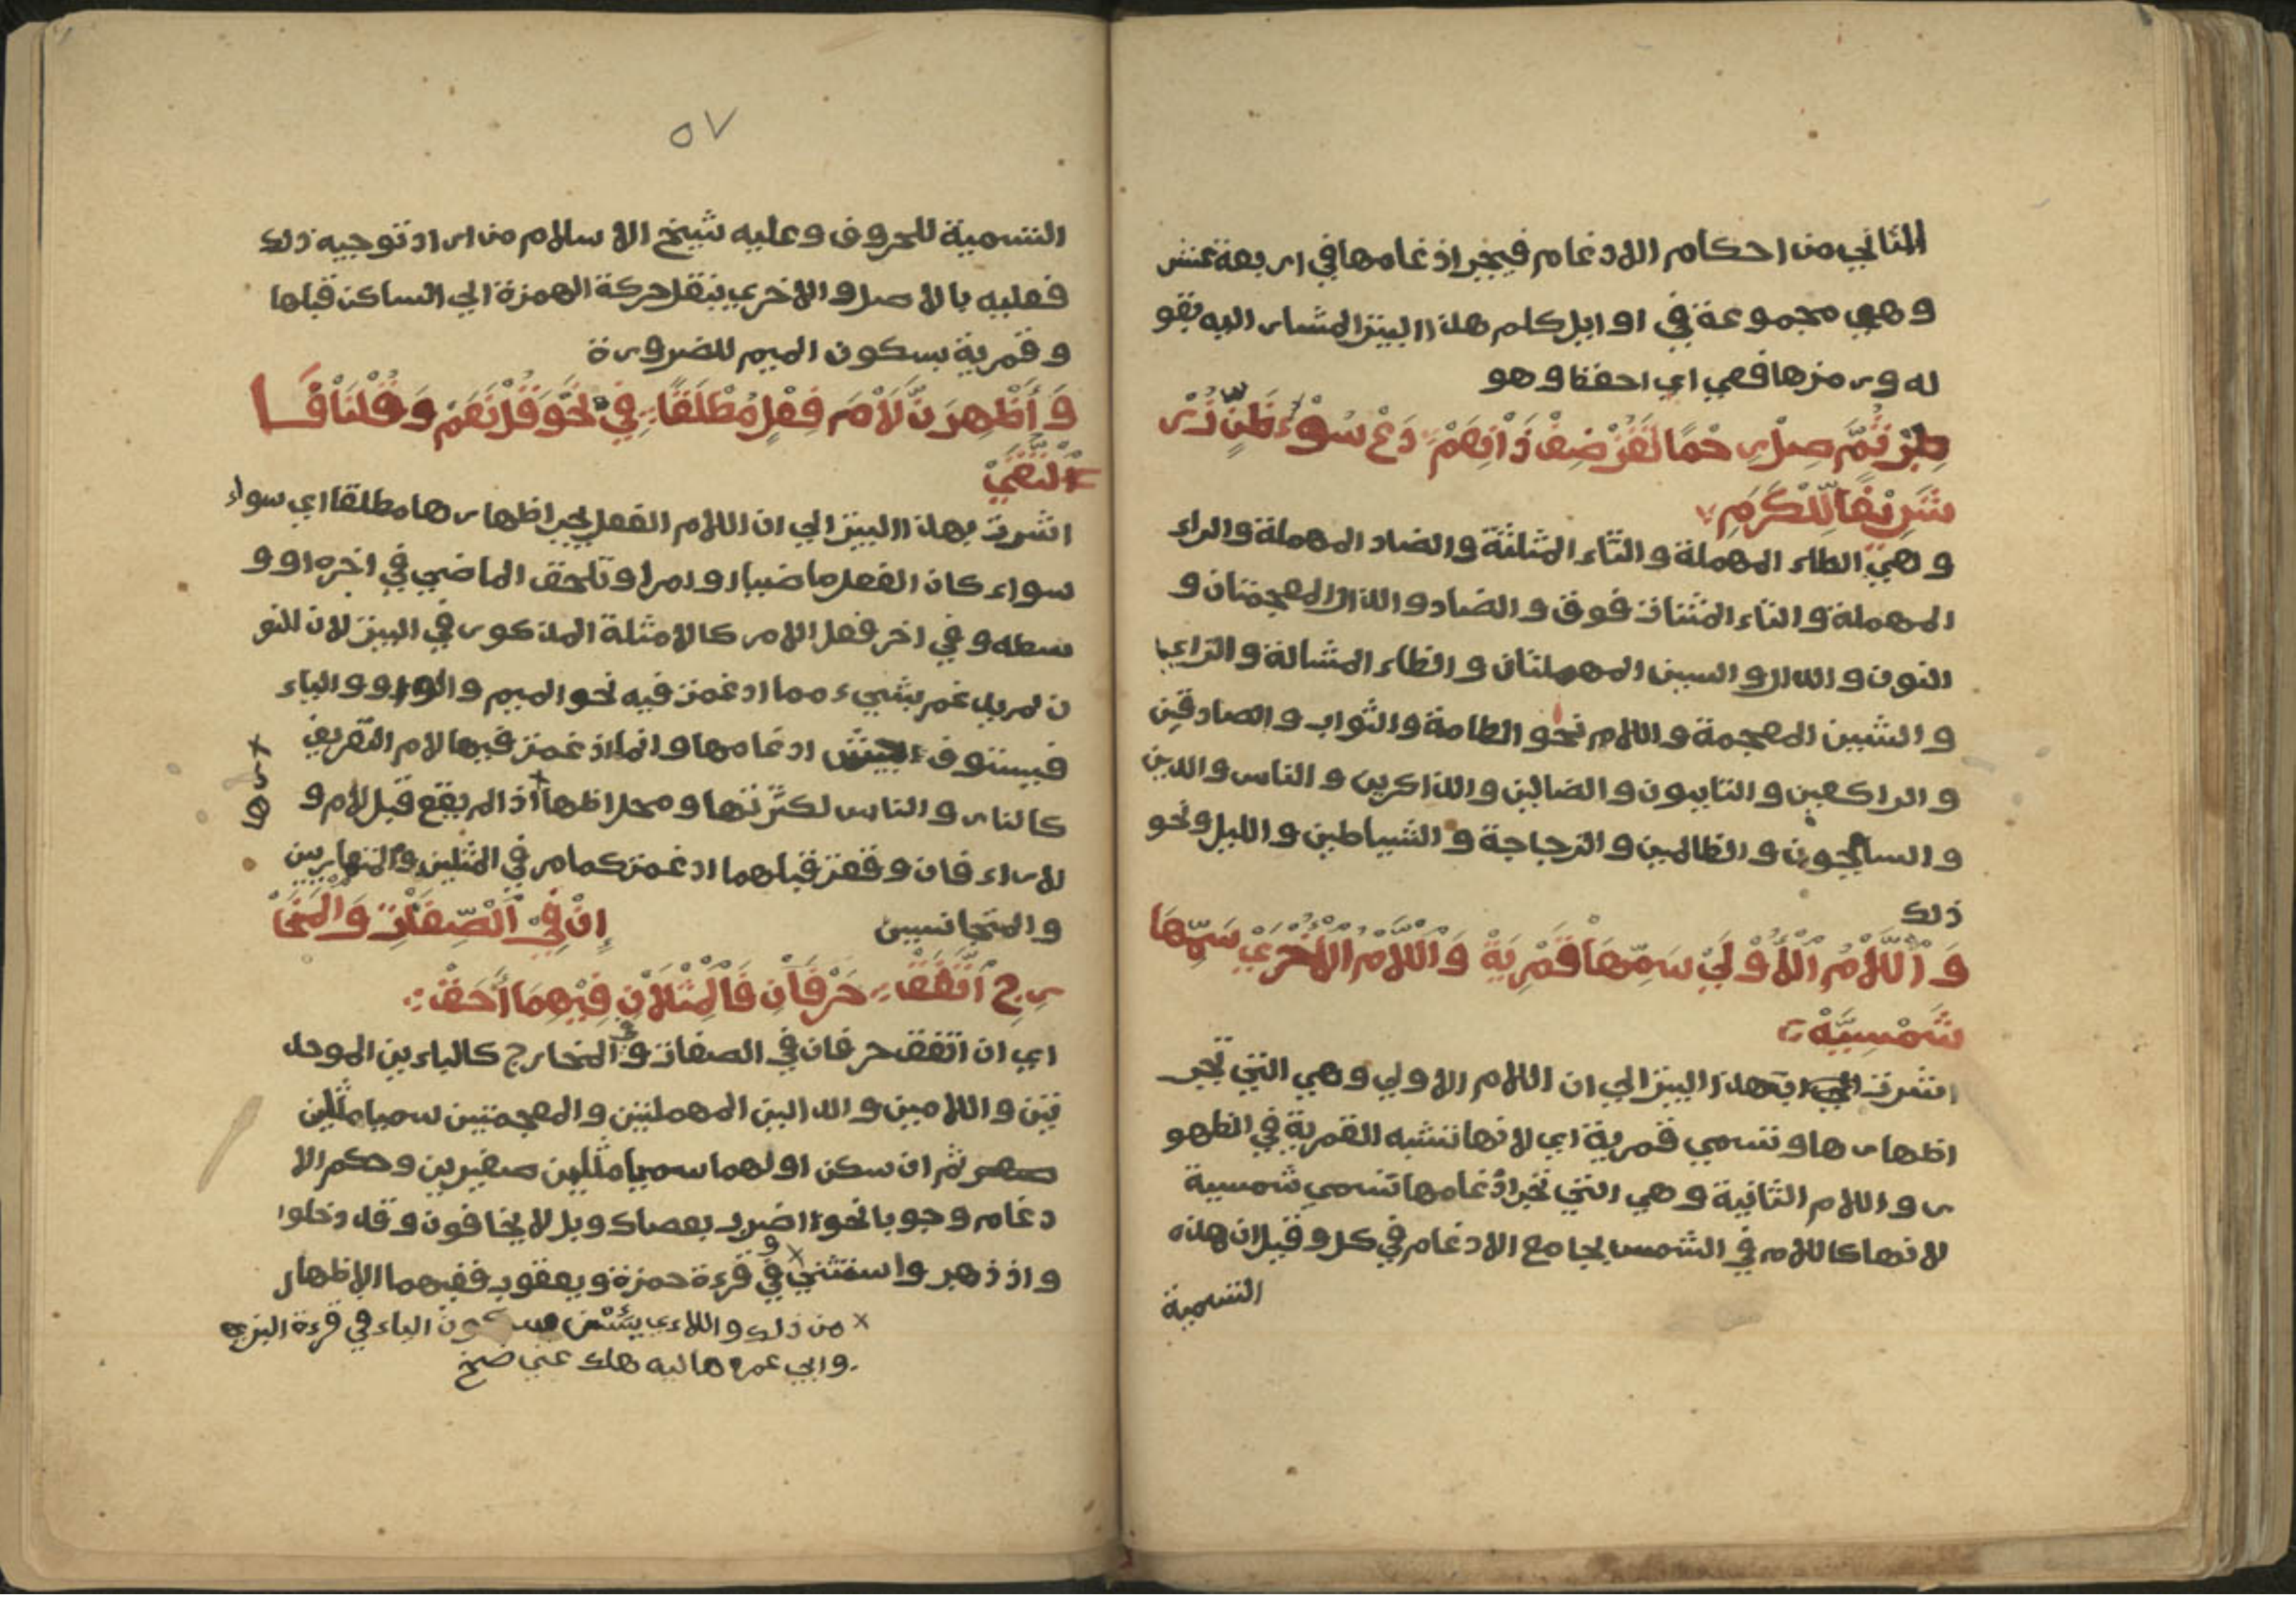 الثاني من احكام اللادغام فيجب ادغامها في اربعة عشر
وهي مجموعة في اوايل كلم هذا البيت المشار اليه بقو
له ورمزها فعي اي احفظ وهو
طِبْ ثُمَّ صِلْ رحْمًا تَفُزْ ضِفْ ذَا نِعَمْ دَعْ سُوْءَ ظَنٍّ زُرْ
شَرِيْفًا لِلْكَرَمِ
وهي الطاء المهملة والثاء المثلثة والصاد المهملة والراء
المهملة والتاء المثناة فوق والضاد والذال المعجمتان و
النون والدال والسين المهملتان والظاء المشالة والزاي
والشين المعجمة واللام نحو الطامة والثواب والصادقين
والراكعين والتايبون والضالين والذاكرين والناس والدين
والسايحون والظالمين والزجاجة والشياطين والليل ونحو
ذلك
وَاللَّامُ الْأُوْلَىْ سَمِّهَا قَمْرِيَةْ وَاللَّامُ الْأُخْرَيْ سَمِّهَا
شَمْسِيَّةْ
اشرت بهذا البيت الي ان اللام الاولي وهي التي تجب
اظهارها وتسمي قمرية اي لانها تشبه القمرية في الظهو
ر واللام الثانية وهي التي تجب ادغامها تسمي شمسية
لانها كاللام في الشمس بجامع الادغام في كل وقيل ان هذه
التسمية
٥٧
التسمية للحروف وعليه شيخ الاسلام من اراد توجيه ذلك
فعليه بالاصل والاخري بنقل حركة الهمزة الي الساكن قبلها
وقمرية بسكون الميم للضرورة
وَأَظْهِرَنَّ لَاْمَ فِعْلٍ مُطْلَقًا فِيْ نَحْوِ قُلْ نَعَمْ وَقُلْنَا
وَالْتَقَيْ
اشرت بهذا البيت الي ان اللام الفعل يجب اظهارها مطلقا اي سواء
سواء كان الفعل ماضيا او امرا وتلحق الماضي في اخره او و
سطه وفي اخر فعل الامر كالامثلة المذكور في البيت لان النو
ن لم يدغم بشيء مما ادغمت فيه نحو الميم والواو والياء
ادغامها وانما ادغمت فيها لام التعريف
كالنار والناس لكثرتها ومحل اظها اذا لم يقع قبل لام و
رها
لا راء فان وقعت قبلهما ادغمت كما مر في المثلين والمتقاربين
والمتجانسين إِنْ فِيْ الصِّفَاتِ وَالْمَخَاْ
رِجِ اتَّفَقْ حَرْفَاْنِ فَالْمِثْلَاْنِ فِيْهِمَا أَحَقْ
اي ان اتفق حرفان في الصفات وفي المخارج كالباءين الموحد
تين واللامين والدالين المهملتين والمعجمتين سميا مثلين
ثم ان سكن اولهما سميا مثلين صغيرين وحكم الا
دغام وجوبا نحو اضرب بعصاك وبل لا يخافون وقد دخلوا
واذ ذهب واستثني في قرءة حمزة ويعقوب ففيهما الاظهار
من ذلك واللاءي يئسن بسكون الياء في قرءة البزي
وابي عمرو ماليه هلك عني